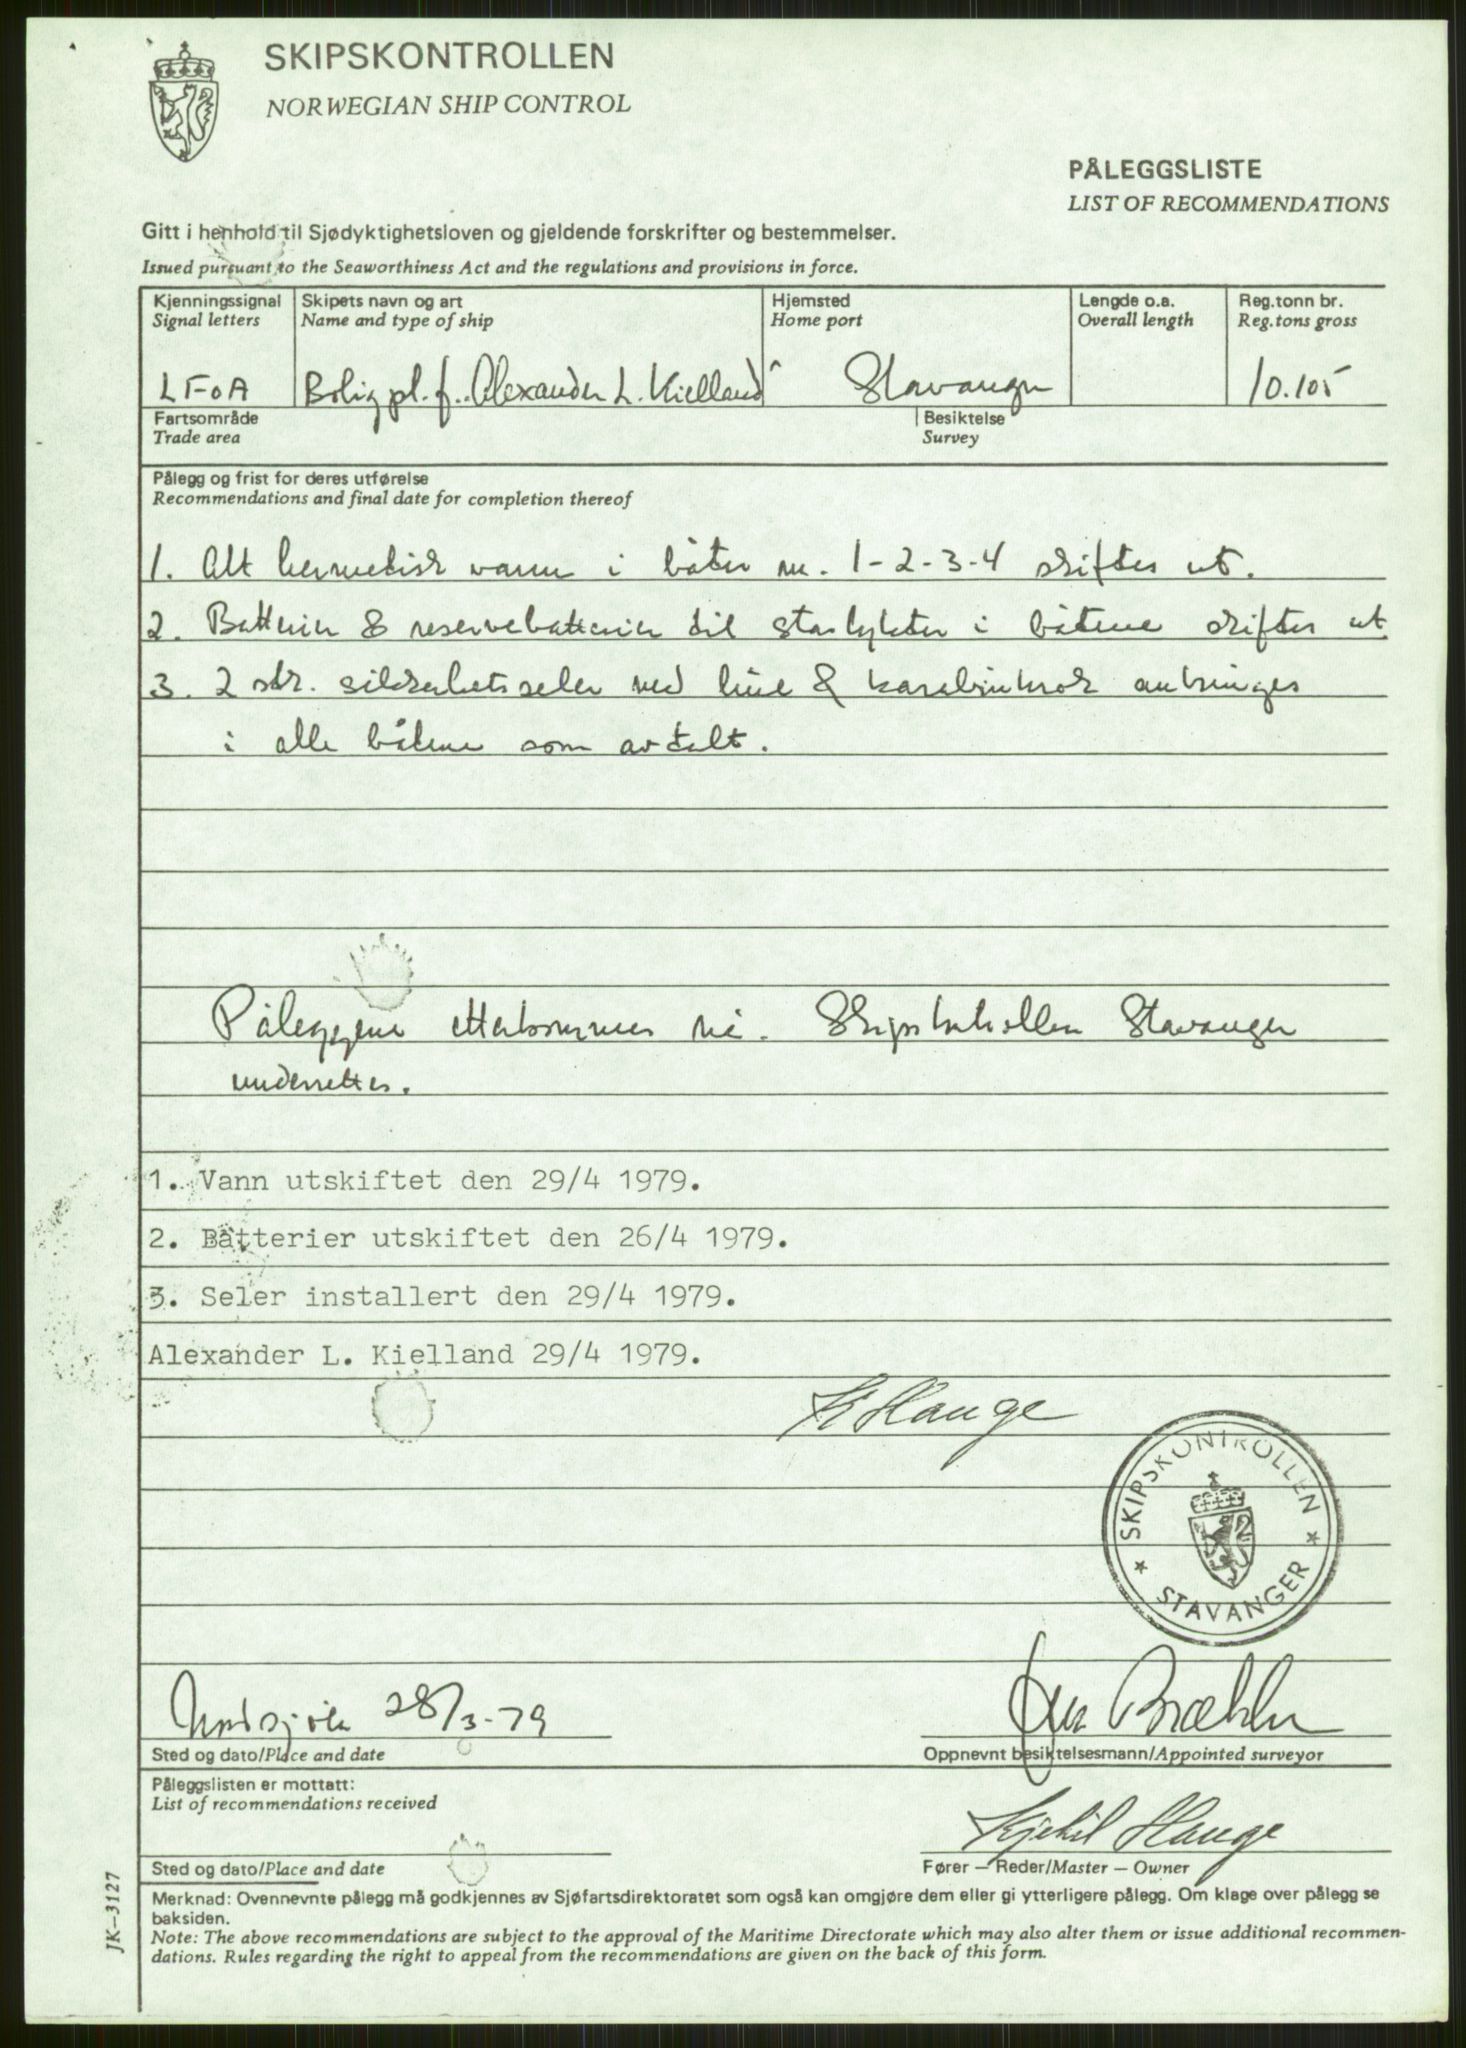 SKIPSKONTROLLEN
NORWEGIAN SHIP CONTROL
PÅLEGGSLISTE
LIST OF RECOMMENDATIONS
Gitt i henhold til Sjødyktighetsloven og gjeldende forskrifter og bestemmelser.
Issued pursuant to the Seaworthiness Act and the regulations and provisions in force.
Kjenningssignal Skipets navn og art Hjemsted Lengde o.a. Reg.tonn br.
Signal letters Name and type of ship Home port Overall length Reg.tons gross
LFOA Bolig pl.f. "Alexander L. Kielland" Stavanger 10.105
Fartsområde Besiktelse
Trade area Survey
Pålegg og frist for deres utførelse
Recommendations and final date for completion thereof
1. Alt hermetisk vann i båter nr. 1-2-3-4 skiftes ut.
2. Batterier & reservebatterier til stavlykter i båtene skiftes ut.
3. 2 stk. sikkerhetsseler med line & karabinkrok anbringes
i alle båtene som avtalt.
Påleggene etterkommes nå. Skipskontrollen Stavanger
underrettes.
1. Vann utskiftet den 29/4 1979.
2. Batterier utskiftet den 26/4 1979.
3. Seler installert den 29/4 1979.
Alexander L. Kielland 29/4 1979.
K Hauge
SKIPSKONTROLLEN
STAVANGER
Nordsjøen 28/3-79
Sted og dato/Place and date Oppnevnt besiktelsesmann/Appointed surveyor
Påleggslisten er mottatt:
List of recommendations received
Kjetil Hauge
Sted og dato/Place and date Fører — Reder/Master — Owner
Merknad: Ovennevnte pålegg må godkjennes av Sjøfartsdirektoratet som også kan omgjøre dem eller gi ytterligere pålegg. Om klage over pålegg se
baksiden.
Note: The above recommendations are subject to the approval of the Maritime Directorate which may also alter them or issue additional recommen-
dations. Rules regarding the right to appeal from the recommendations are given on the back of this form.
JK—3127